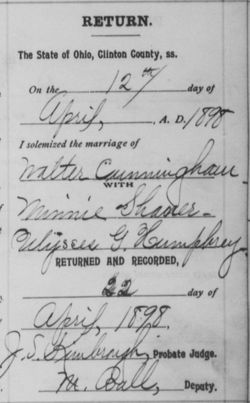 RETURN.
The State of Ohio, Clinton County, ss.
On the 12th day of
April, A. D. 1898
I solemnized the marriage of
Walter Cunningham
WITH
Minnie Shaner
Ulysses G. Humphrey
RETURNED AND RECORDED,
22 day of
April, 1898.
J. S. Kimbrough, Probate Judge.
M. Ball, Deputy.